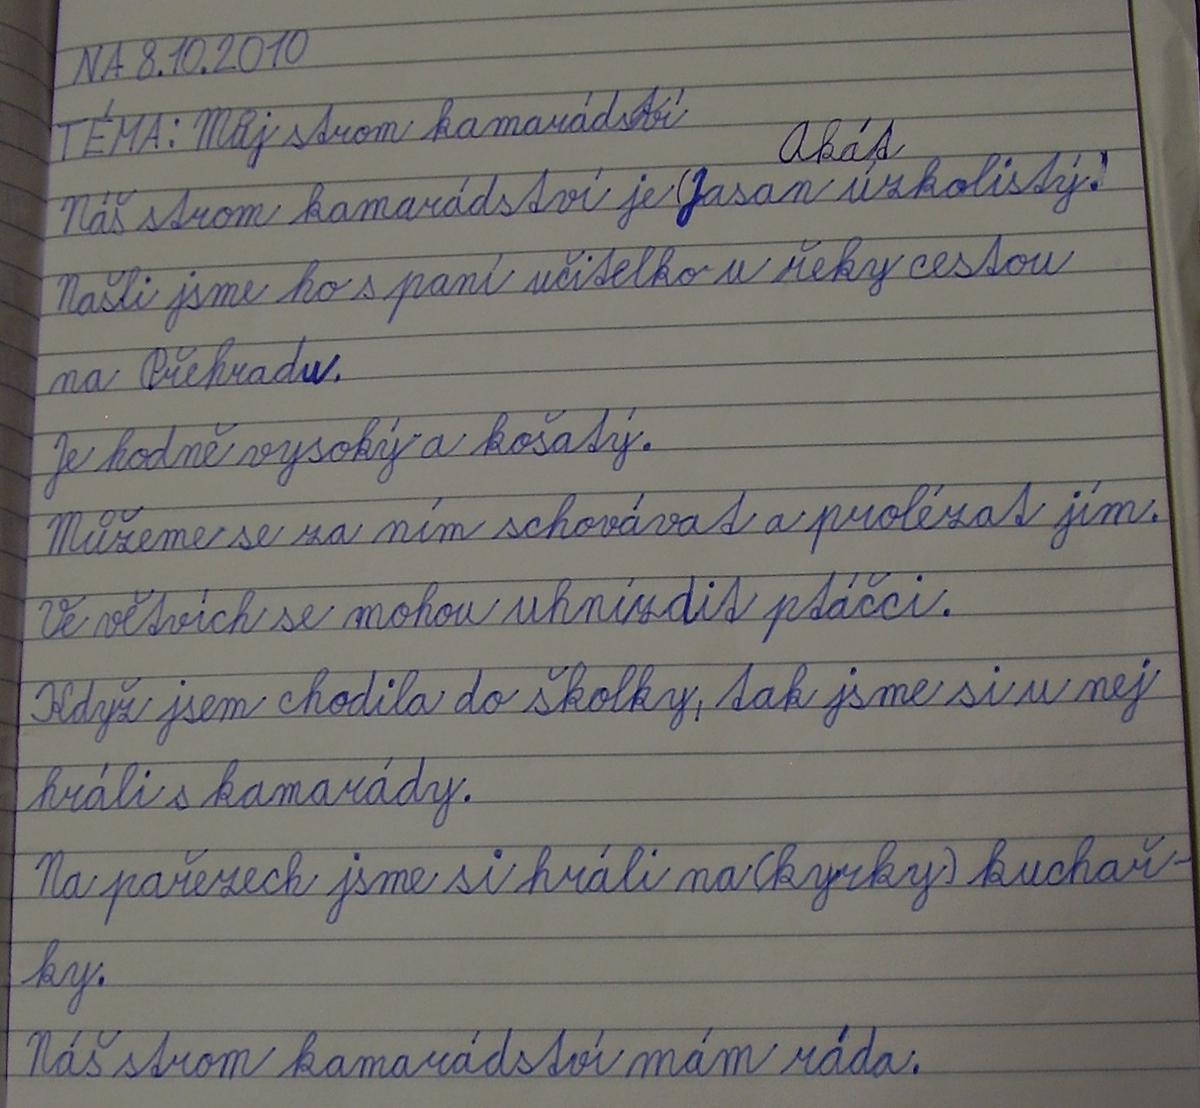 NA 8.10.2010
TÉMA: Můj strom kamarádství
Akát
Náš strom kamarádství je (Jasan úzkolistý.)
Našli jsme ho s paní učitelko u řeky cestou
na Přehradu.
Je hodně vysoký a košatý.
Můžeme se za ním schovávat a prolézat jím.
Ve větvích se mohou uhnízdit ptáčci.
Když jsem chodila do školky, tak jsme si u nej
hráli s kamarády.
Na pařezech jsme si hráli na (kyrky) kuchař-
ky.
Náš strom kamarádství mám ráda.